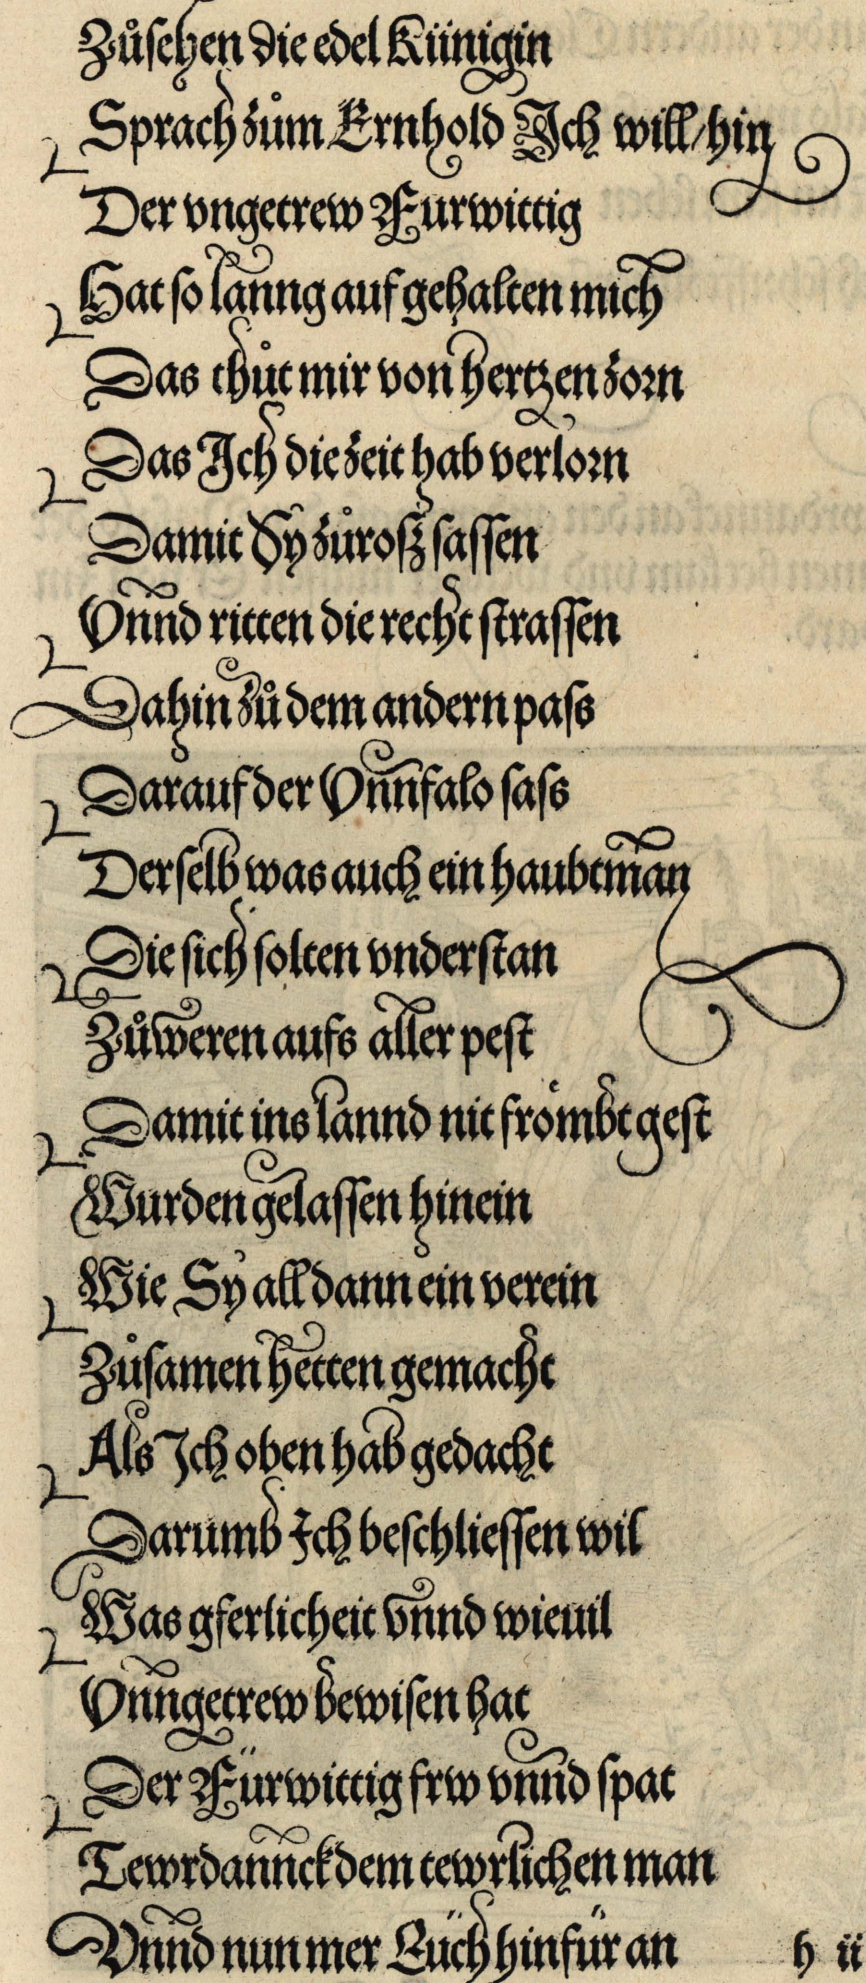 Zůsehen die edel Küinigin
Sprach zům Ernhold Ich will/hin
Der vngetrew Furwittig
Hat so lanng auf gehalten mich
Das thůt mir von hertzen zorn
Das Ich die zeit hab verlorn
Damit Sy zůrosz sassen
Vnnd ritten die recht strassen
Dahin zů dem andern pass
Darauf der Vnnfalo sass
Derselb was auch ein haubtman
Die sich solten vnderstan
Zůweren aufs aller pest
Damit ins lannd nit frömbt gest
Wurden gelassen hinein
Wie Sy all dann ein verein
Zůsamen hetten gemacht
Als Ich oben hab gedacht
Darumb Ich beschliessen wil
Was gferlicheit vnnd wieuil
Vnngetrew bewisen hat
Der Fürwittig frw vnnd spat
Tewrdannck dem tewrlichen man
Vnnd nun mer Eüch hinfür an h ii